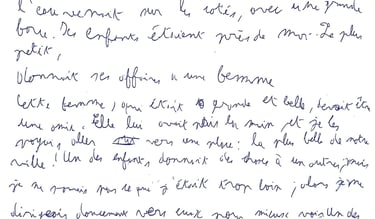 l'couvrement sur les cotés, avec une grande
boue. Des enfants étaient près de moi. Le plus
petit,
donnait ses affaires a une femme
Cette femme, qui était grande et belle, devait être
une amie. Elle lui avait pris la main et je les
voyais, aller vers une place: la plus belle de notre
ville! Un des enfants donnait des choses à un autres, mais
je ne savais pas ce que j'étais trop loin; alors je me
dirigeais doucement vers eux pour mieux voir. Un des